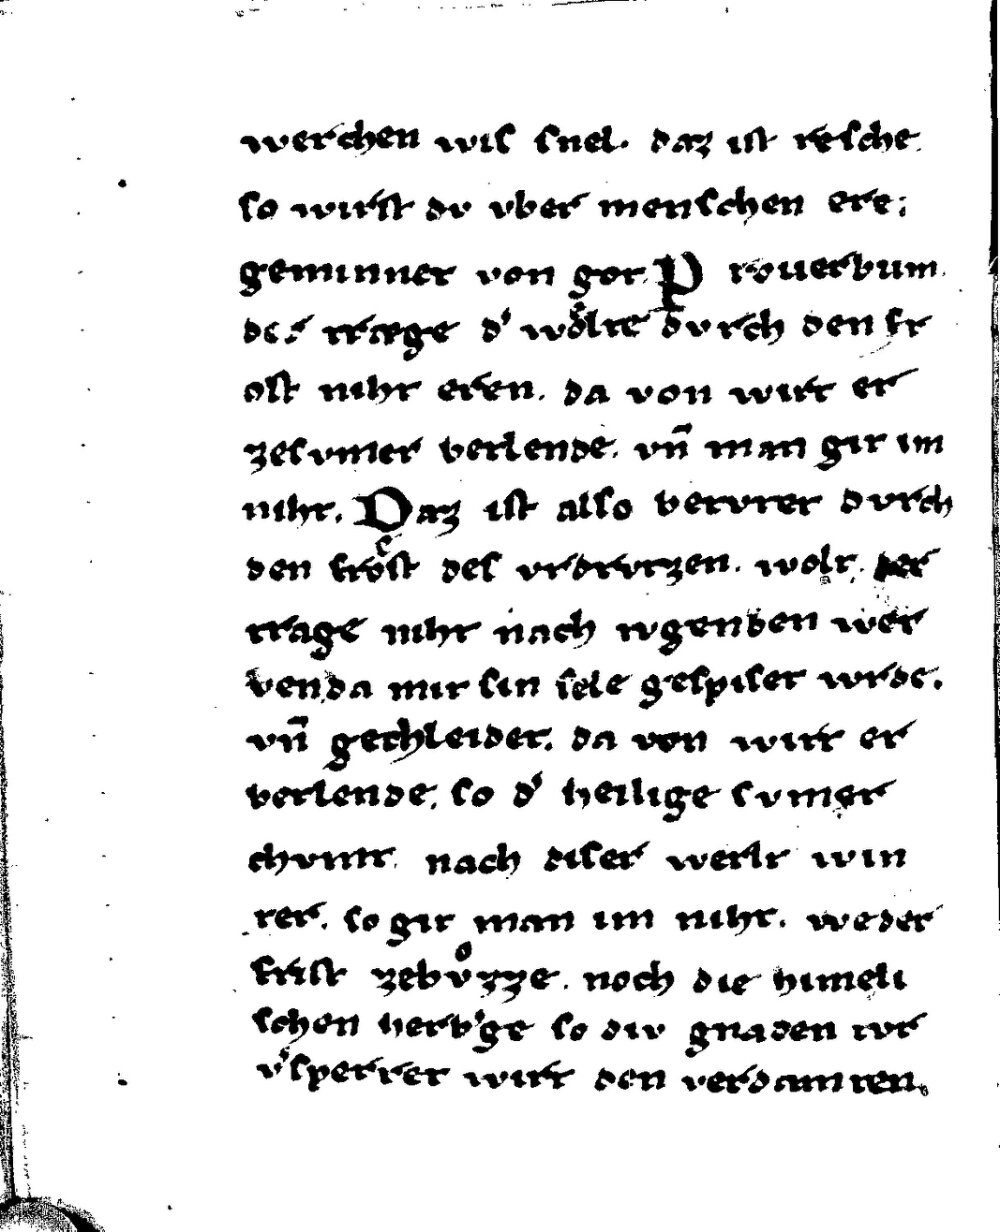 werchen wis snel. daz ist resche.
so wirst dv vber menschen ere;
geminnet von got. Prouerbum.
des træge d' woͤlte dvrch den fr
ost niht eren. da von wirt er
zesvmer betlende. vn̄ man git im
niht. Daz ist also betvtet dvrch
den froͤst des vrdrvtzen. wolt der
trage niht nach tvgenden wer
ven da mit sin sele gespiset wrde.
vn̄ gechleidet. da von wirt er
betlende. so d' heilige svmer
chvmt. nach diser werlt win
ter. so git man im niht. weder
frist zebvͦzze. noch die himeli
schen herb'ge so div gnaden tvr
v'sperret wirt den verdamten.